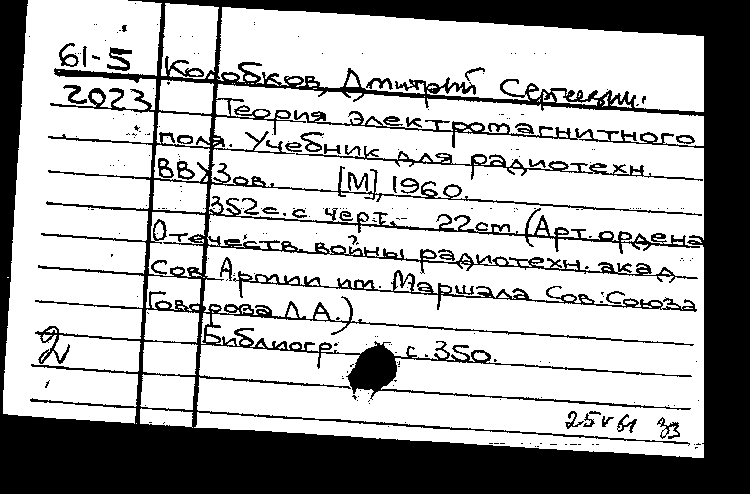 61-5 Колобков, Дмитрий Сергеевич.
2023 Теория электромагнитного
поля. Учебник для радиотехн.
ВВУЗов. [М], 1960.
352с. с черт. 22см. (Арт. ордена
Отечеств. войны радиотехн. акад.
Сов. Армии им. Маршала Сов. Союза
Говорова Л.А.).
Библиогр: с. 350.
2
25 V 61 33